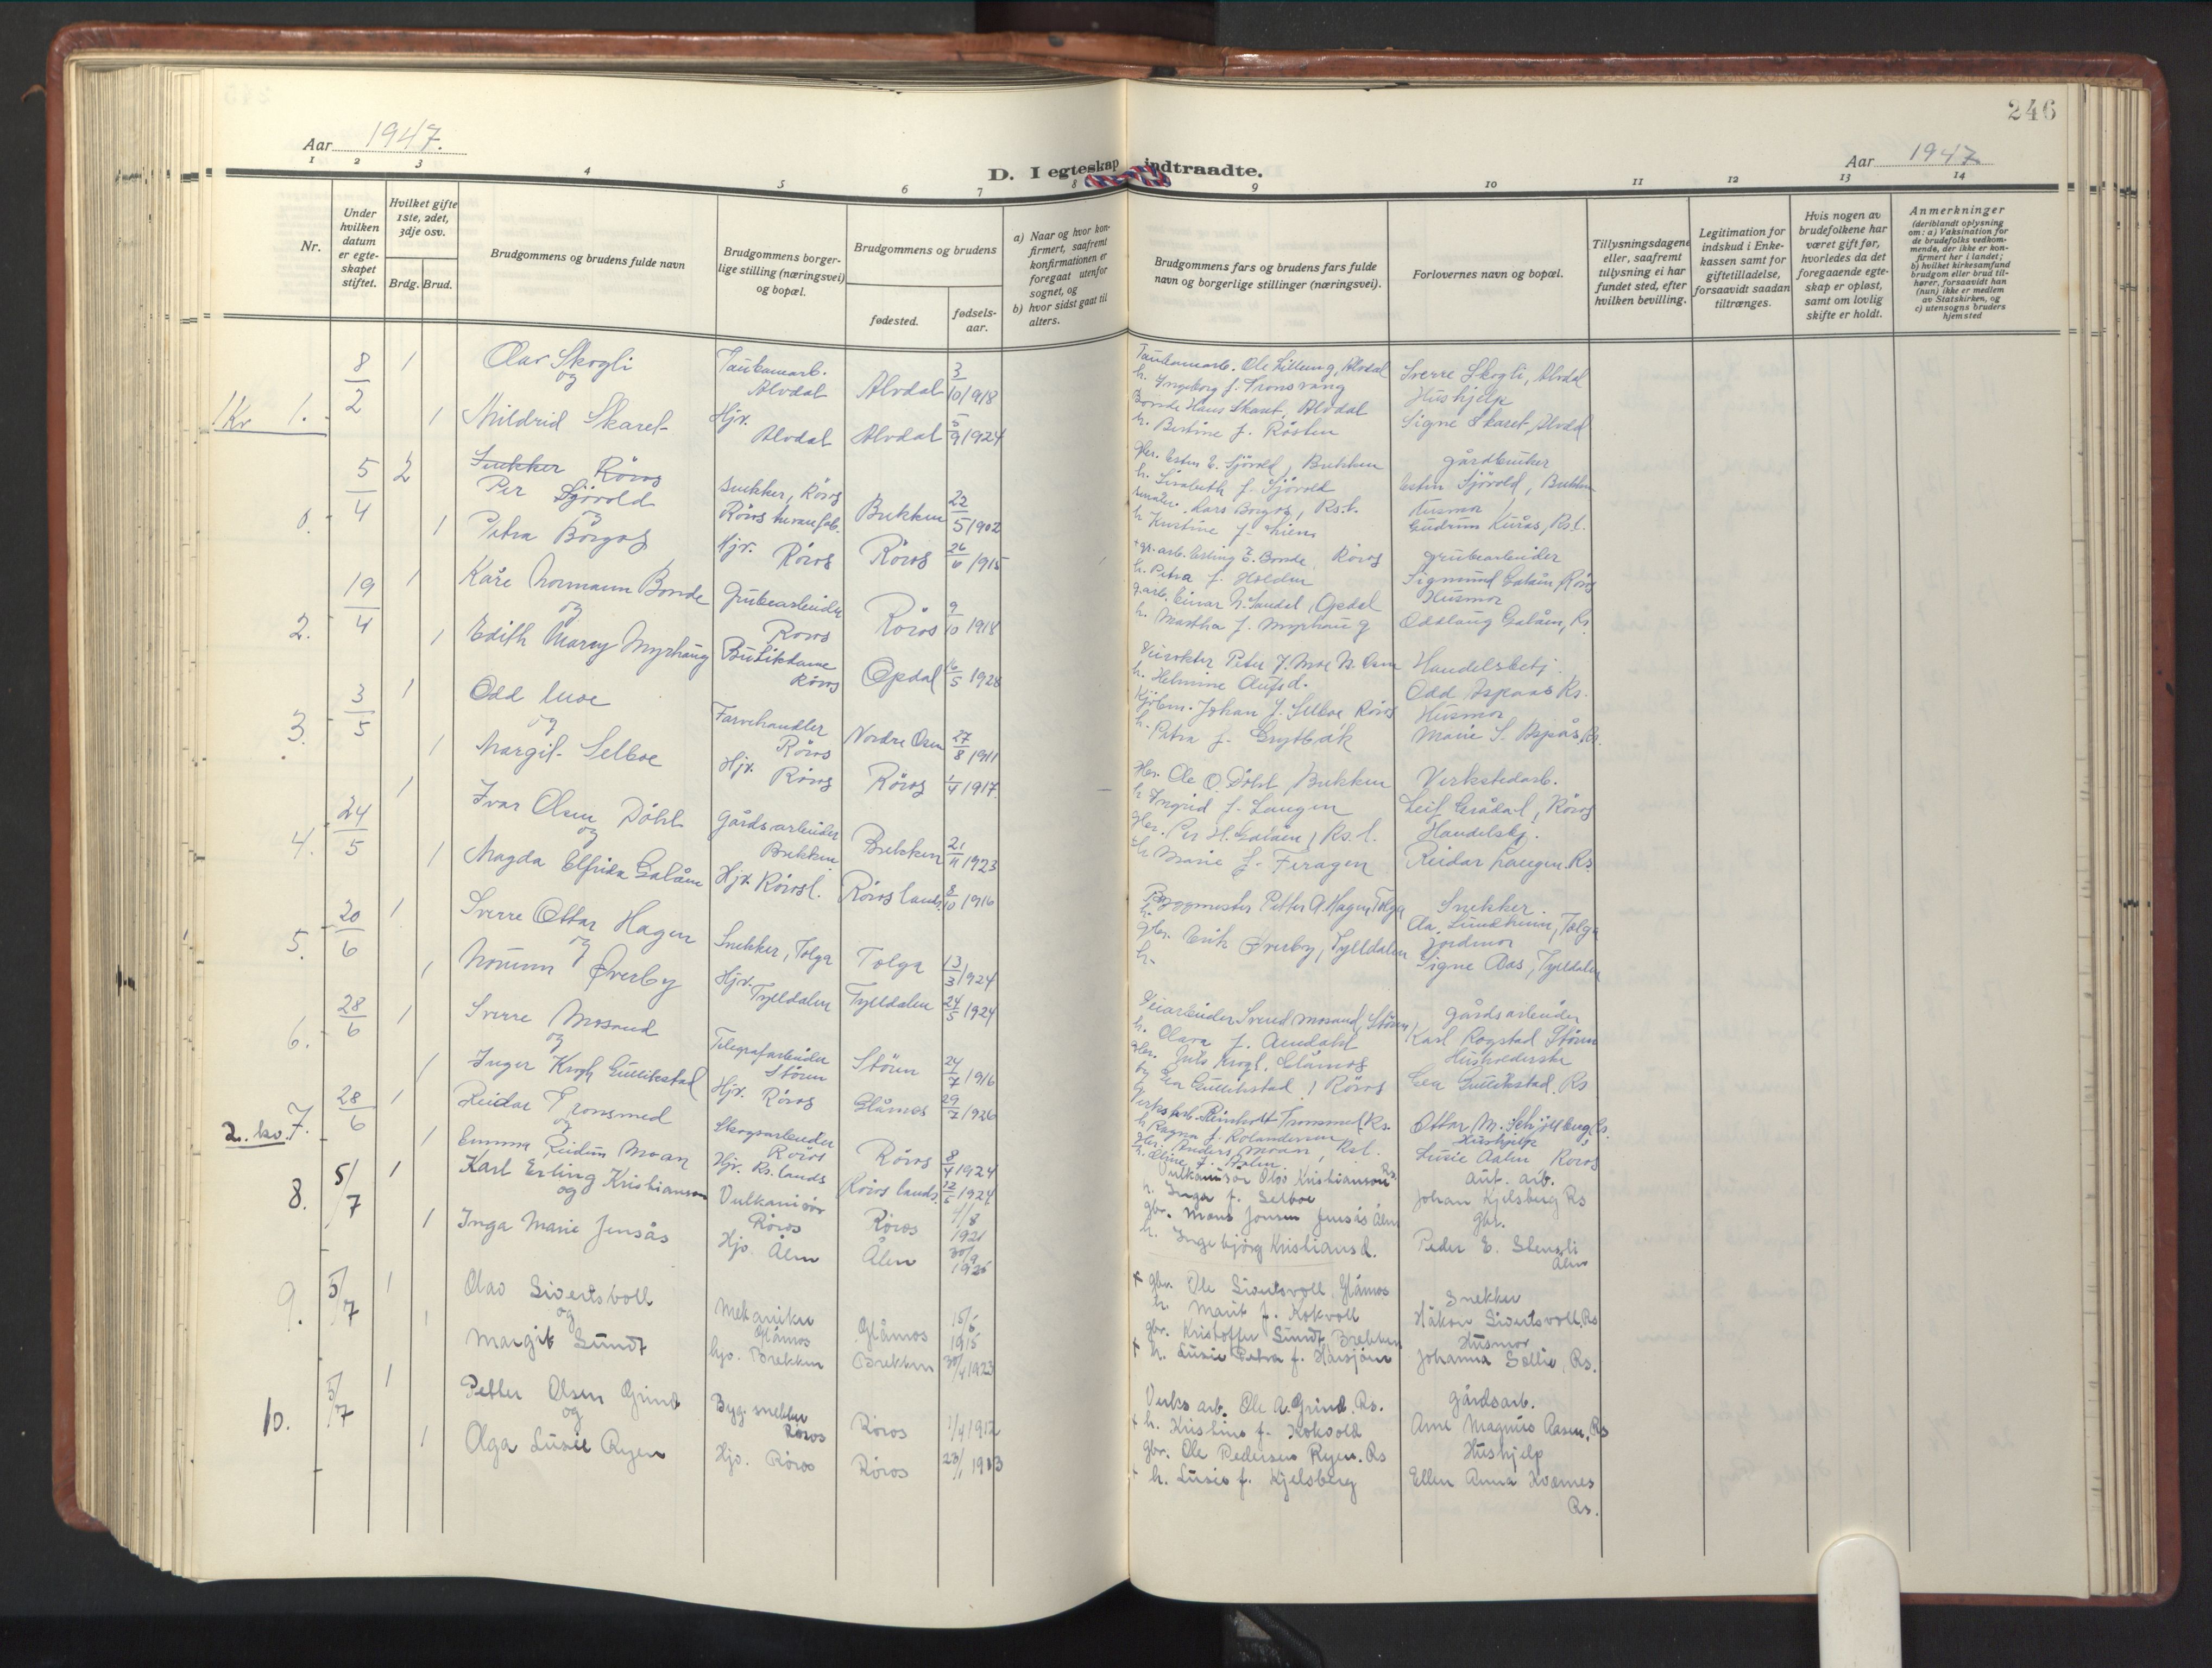 246
Aar 1947.
D. I egteskap indtraadte.
Aar 1947
1 2 3 4 5 6 7 8 9 10 11 12 13 14
Nr.
Under hvilken datum er egteskapet stiftet.
Hvilket gifte 1ste, 2det, 3dje osv.
Brdg. Brud.
Brudgommens og brudens fulde navn
Brudgommens borgerlige stilling (næringsvei) og bopæl.
Brudgommens og brudens
fødested.
fødselsaar.
a) Naar og hvor konfirmert, saafremt konfirmationen er foregaat utenfor sognet, og
b) hvor sidst gaat til alters.
Brudgommens fars og brudens fars fulde navn og borgerlige stillinger (næringsvei).
Forlovernes navn og bopæl.
Tillysningsdagene eller, saafremt tillysning ei har fundet sted, efter hvilken bevilling.
Legitimation for indskud i Enkekassen samt for giftetilladelse, forsaavidt saadan tiltrænges.
Hvis nogen av brudefolkene har været gift før, hvorledes da det foregaaende egteskap er opløst, samt om lovlig skifte er holdt.
Anmerkninger
(deriblandt oplysning om: a) Vaksination for de brudefolks vedkommende, der ikke er konfirmert her i landet;
b) hvilket kirkesamfund brudgom eller brud tilhører, forsaavidt han (hun) ikke er medlem av Statskirken, og
c) utensogns bruders hjemsted
1 Kv 1. 8/2 1 Olav Skogli
og
Alvdal Alvdal 3/10 1918
h. Ingeborg f. Tronsvang
Sverre Skogli, Alvdal
Hushjelp
1 Mildrid Skaret
Hjv. Alvdal Alvdal 5/9 1924
Bonde Hans Skaret, Alvdal
h. Bertine f. Røsten
Signe Skaret, Alvdal
5/4 2 Snekker Röros
Per Sjövold
og
snekker, Röros
Brekken 22/5 1902
gbr. Esten E. Sjövold, Brekken
h. Lisabeth f. Sjövold
gårdbruker
Esten Sjövold, Brekken
Husmor
1 Petra Borgos
Hjv. Röros Röros 26/6 1915
Lars Borgos, Rs.l.
Gudrun Kurås, Rs.l.
2. 19/4 1 Kåre Normann Bonde
og
Grubearbeider
Röros Röros 9/10 1918
Erling E. Bonde, Röros
h. Petra f. Holden
grubearbeider
Sigmund Galåen, Röros
Husmor
1 Edith Marny Myrhaug
Butikdame
Röros Opdal 16/5 1928
g.arb. Einar N. Sundal, Opdal
h. Martha f. Myrhaug
Oddlaug Galåen, Rs.
3. 3/5 1 Odd Moe
og
Farvehandler
Röros Nordre Osen 27/8 1911
Peter J. Moe N. Osen
h. Helmine Olufsd.
Handelsbetj.
Odd Aspaas Rs.
Husmor
1 Margit Selboe
Hjv. Röros Röros 1/4 1917
Kjöbm. Johan J. Selboe Röros
h. Petra f. Grytbak
Marie S. Aspås, Rs.
4. 24/5 1 Ivar Olsen Döhl
og
Gårdsarbeider
Brekken Brekken 21/11 1923
Gbr. Ole O. Döhl, Brekken
h. Ingrid f. Langen
Verkstedarb.
Leif Grådal, Röros
Handelsbj.
1 Magda Elfrida Galåen
Hjv. Rörosl. Röros lands. 8/10 1916
Gbr. Per H. Galåen, Rs.l.
h. Marie f. Feragen
Reidar Langen. Rs.
5. 20/6 1 Sverre Ottar Hagen
og
Snekker, Tolga Tolga 13/3 1924
Byggmester Petter A. Hagen, Tolga
h.
Snekker.
Ola Sundhum, Tolga
Jordmor
1 Nöunn Øverby
Hjv. Tylldalen Tylldalen 24/5 1924
gbr. Erik Øverby, Tylldalen
h.
Signe Aas, Tylldalen
6. 28/6 1 Sverre Mosand
og
Telegrafarbeider
Stören Stören 24/7 1916
Veiarbeider Svend Mosand, Stören
h. Olava f. Aendahl
gårdsarbeider
Karl Rogstad Stören
Husholderske
1 Inger Krogh Gullikstad
Hjv. Röros Glåmos 29/7 1926
Gbr. Jens Krogh, Glåmos
Eva Gullikstad, Röros
Eva Gullikstad. Rs
2. kv. 7. 28/6 1 Reidar Tronsmed
og
Skogsarbeider
Röros Röros 8/4 1924
Verksarb. Reinholt Tronsmed. Rs.
h. Ragna f. Rolandsson
Ottar M. Schjölberg Rs.
Hushjelp
1 Emma Reidun Moan
Hjv. Rs. lands Röros lands. 12/5 1924
gbr. Anders Moan, Rs.l.
h. Oline f. Aalen
Lusie Aalen Röros
8. 5/7 1 Karl Erling Kristianson
og
Vulkanisör
Röros Röros 4/8 1921
Vulkanisör Olav Kristianson Rs
h. Inga f. Selboe
aut. arb.
Johan Kjelsberg Rs
gbr.
1 Inga Marie Jensås
Hjv. Ålen Ålen 30/9 1925
gbr. Mons Jonsen Jensås Ålen
h. Ingebjörg Kristiansd.
Peder E. Stensli
Ålen
9. 5/7 1 Olav Sivertsvoll
og
Mekaniker
Glåmos Glåmos 15/6 1915
+ gbr. Ole Sivertsvoll Glåmos
h. Marit f. Kokvoll
Snekker
Håkon Sivertsvoll, Rs
Husmor
1 Margit Sundt
hjv. Brekken Brekken 30/4 1923
gbr. Kristoffer Sundt Brekken
+ h. Lusie Petra f. Harsjöen
Johanna Sollie, Rs.
10. 5/7 1 Petter Olsen Grind
og
Byg. snekker
Röros Röros 1/4 1912
Verks arb. Ole A. Grind. Rs.
+ h. Kristine f. Kokvoll
gårdsarb.
Arne Magnus Aasen, Rs
Hushjelp
1 Olga Lusie Ryen
Hjv. Röros Röros 23/1 1913
gbr. Ole Pedersen Ryen. Rs
+ h. Lusie f. Kjelsberg
Ellen Anna Kvernes
Rs.